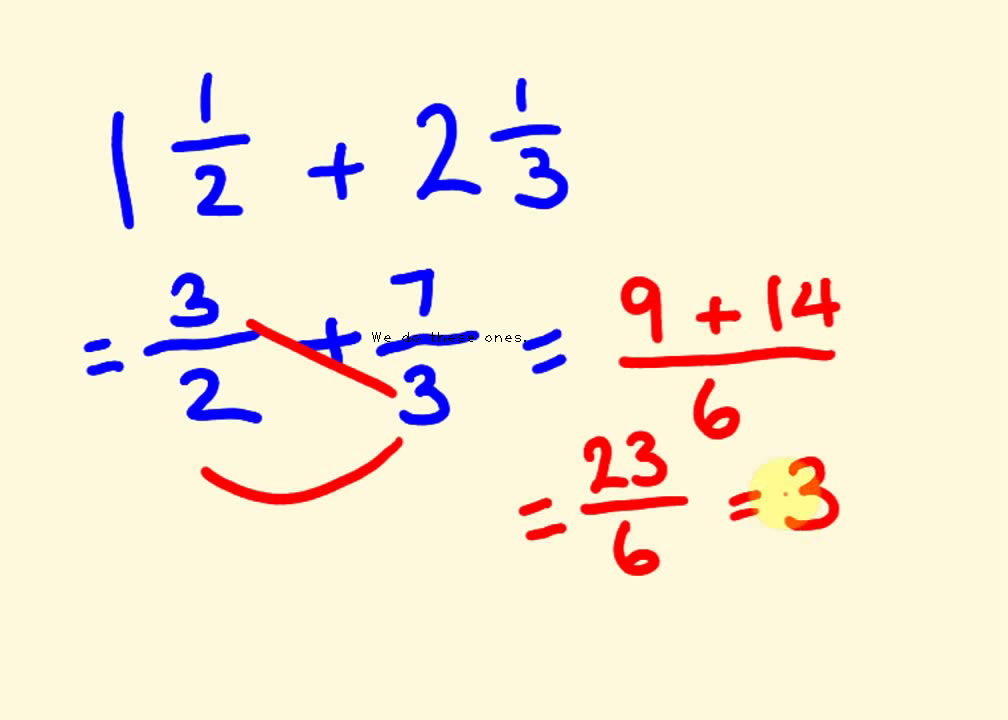 1 1/2 + 2 1/3
= 3/2 + 7/3 = 9 + 14/6
We do these ones.
= 23/6 = 3